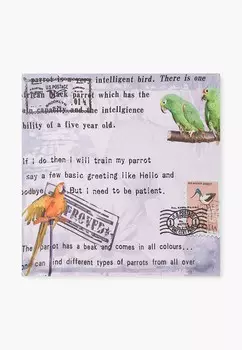 parrot is a very intelligent bird. There is one
african Jack parrot which has the
U.S. POSTAGE
014
ain capatity and the intelligience
bility of a five year old.
If i do then I will train my parrot
say a few basic greeting like Hello and
oodbye. But I need to be patient.
PROVED
The parrot has a beak and comes in all colours...
can find different types of parrots from all over